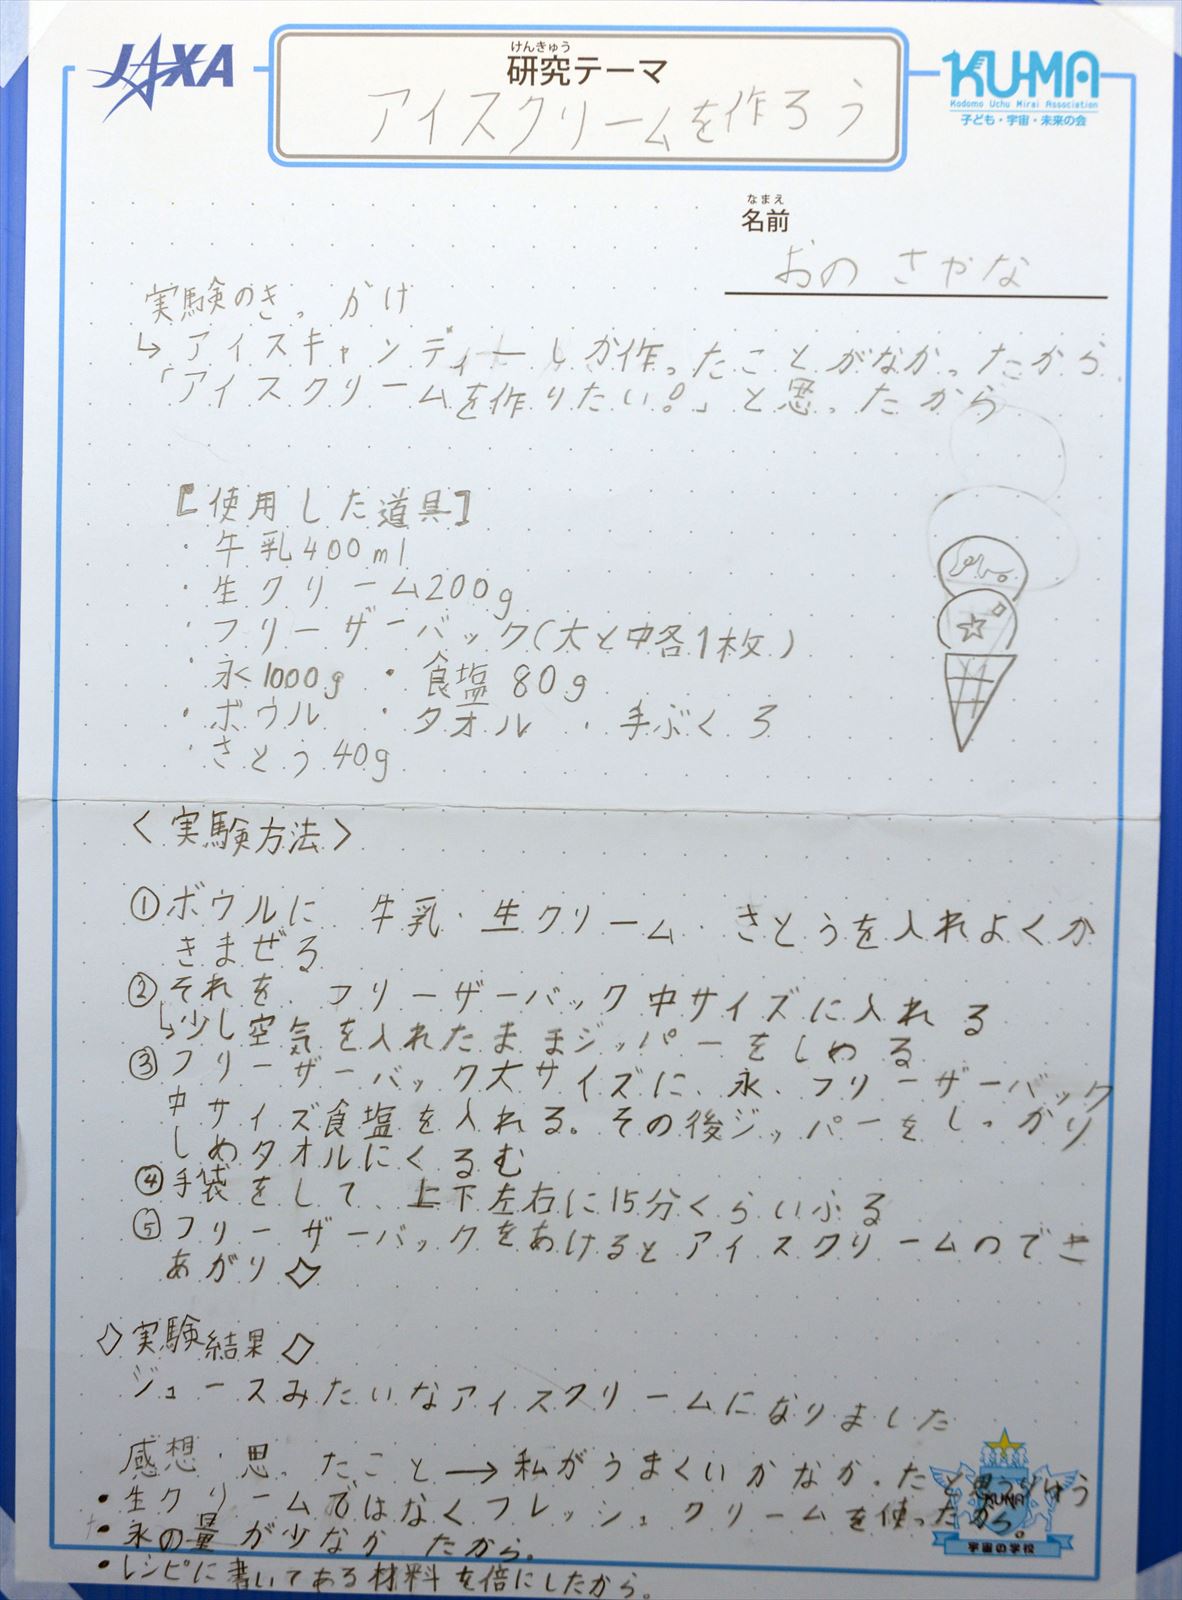 JAXA
けんきゅう
研究テーマ
アイスクリームを作ろう
KU-MA
Kodomo Uchu Mirai Association
子ども・宇宙・未来の会
なまえ
名前
おの さやな
実験のきっかけ
↳アイスキャンディーしか作ったことがなかったから
「アイスクリームを作りたい。」と思ったから
【使用した道具】
・牛乳400ml
・生クリーム200g
・フリーザーバック(大と中各1枚)
・氷1000g ・食塩80g
・ボウル ・タオル ・手ぶくろ
・さとう40g
〈実験方法〉
①ボウルに 牛乳・生クリーム・さとうを入れよくか
きまぜる
②それを、フリーザーバック中サイズに入れる
↳少し空気を入れたままジッパーをしめる
③フリーザーバック大サイズに、氷、フリーザーバック
中サイズ食塩を入れる。その後ジッパーをしっかり
しめタオルにくるむ
④手袋をして、上下左右に15分くらいふる
⑤フリーザーバックをあけるとアイスクリームのでき
あがり◇
◇実験結果◇
ジュースみたいなアイスクリームになりました
感想・思ったこと→私がうまくいかなかったと思うりゆう
・生クリームではなくフレッシュクリームを使ったから。
・氷の量が少なかったから。
・レシピに書いてある材料を倍にしたから。
KUMA
宇宙の学校